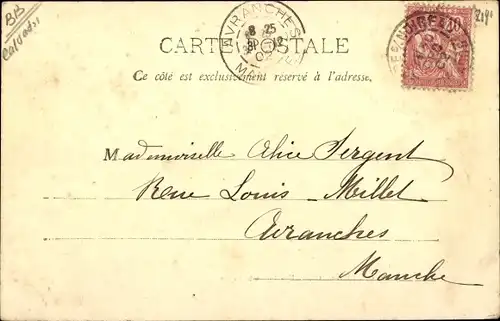 BB
Calvados
2191
AVRANCHES
8 25
12
02
CARTE POSTALE
10
Ce côté est exclusivement réservé à l'adresse.
Mademoiselle Alice Sergent
Rue Louis-Millet
Avranches
Manche